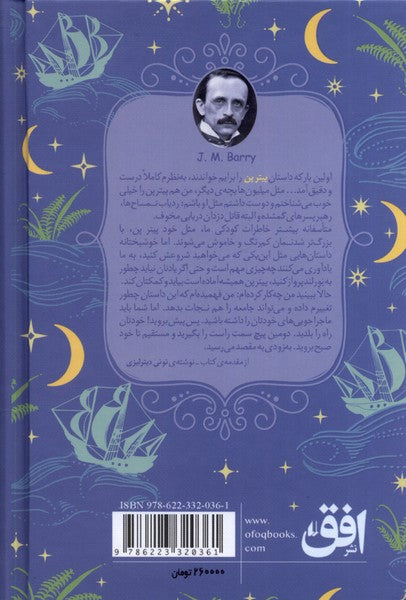 J. M. Barry
اولین بار که داستان پیتر پن را برایم خواندند، به‌نظرم کاملاً درست
و دقیق آمد... مثل میلیون‌ها بچه‌ی دیگر، من هم پیتر پن را خیلی
خوب می‌شناختم و دوست داشتم مثل او باشم: ردیاب تمساح‌ها،
رهبر پسرهای گمشده و البته قاتل دزدان دریایی مخوف.
متأسفانه بیشتر خاطرات کودکی ما، مثل خود پیتر پن، با
بزرگ‌تر شدنمان کم‌رنگ و خاموش می‌شوند. اما خوشبختانه
داستان‌هایی مثل این‌یکی که می‌خواهید شروعش کنید، به ما
یادآوری می‌کنند چه‌چیزی مهم است و حتی اگر یادتان نیاید چطور
به نورلند پرواز کنید، پیتر پن همیشه آماده است بیاید و کمکتان کند.
حالا ببینید من چه‌کار کرده‌ام: من فهمیده‌ام که این داستان چطور
تغییرم داده و می‌تواند جامعه را هم نجات بدهد. اما شما باید
ماجراجویی‌های خودتان را داشته باشید. پس پیش بروید! خودتان
راه را بلدید. دومین پیچ سمت راست را بگیرید و مستقیم تا خود
صبح بروید. به‌زودی به مقصد می‌رسید.
از مقدمه‌ی کتاب _ نوشته‌ی تونی دیترلیزی
ISBN 978-622-332-036-1
9 786223 320361
۲۶۰۰۰۰ تومان
www.
ofoqbooks.
com
نشر افق